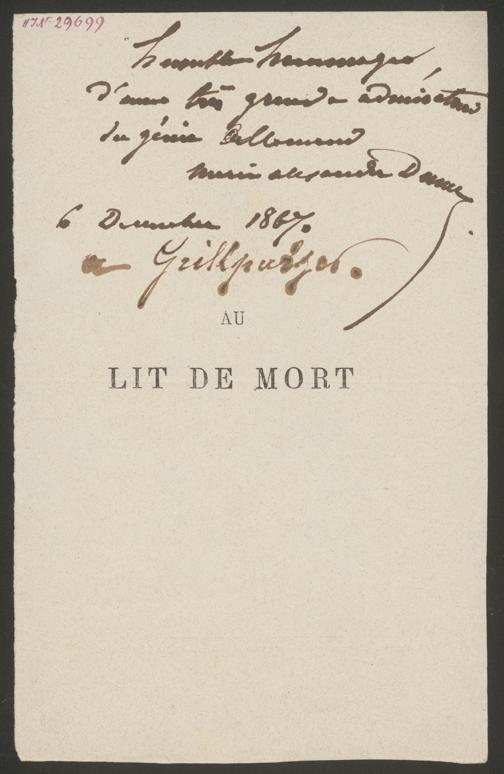 HIN-29699
humble hommages
d'une très grande admiratrice
du génie allemand
marie alexandre Dumas
6 Decembre 1867.
a Grillparzer.
AU
LIT DE MORT